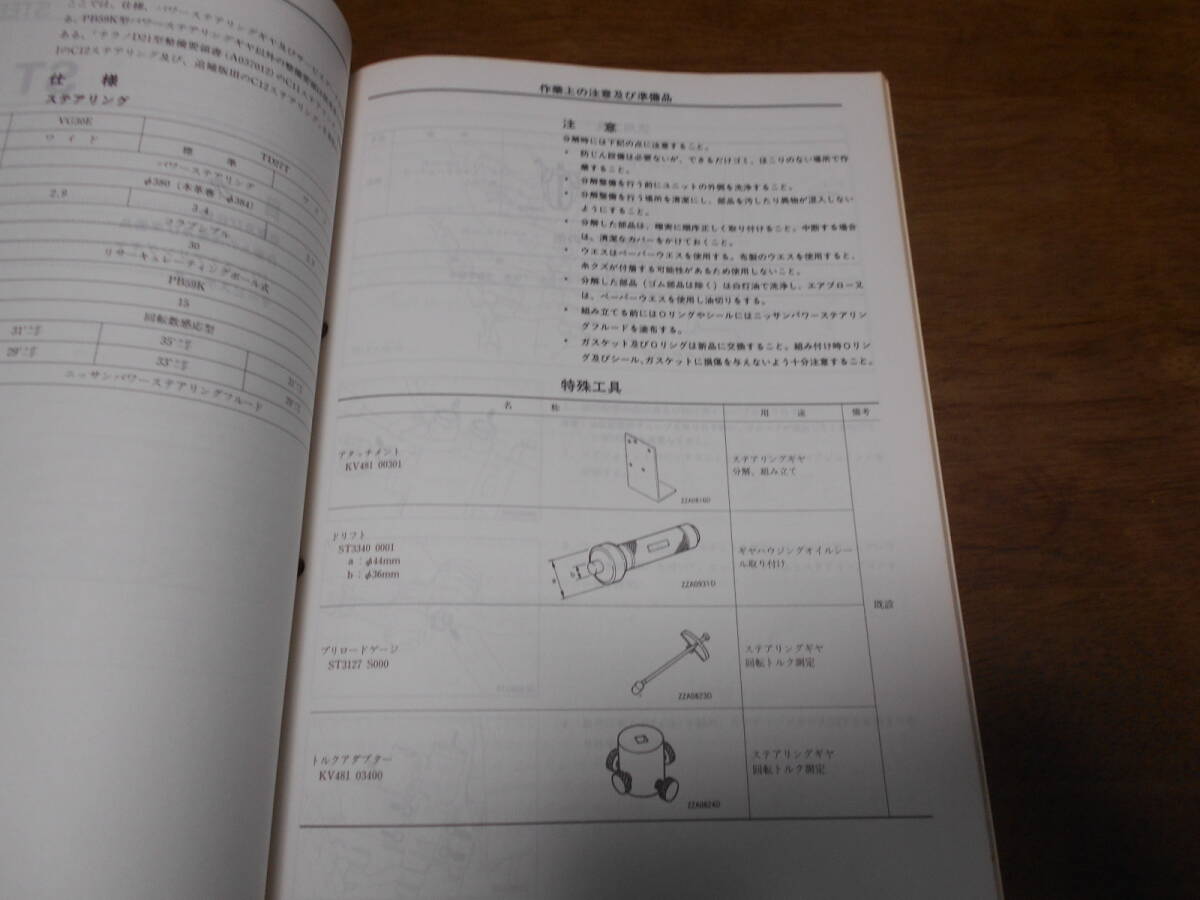 STEE
ST
ここでは、仕様、パワーステアリングギヤ及びサービスデータ
る。PB59K型パワーステアリングギヤ以外の整備要領は
ある、「テラノD21型整備要領書 (A037012) のC11ステア
IのC12ステアリング及び、追補版IIIのC12ステアリング
仕 様
ステアリング
VG30E
TD27T
ワイド
標準
ワイ
パワーステアリング
φ380 (本革巻:φ384)
2.9
3.4
コラプシブル
30
リサーキュレーティングボール式
PB59K
15
回転数感応型
31°
35°
29°
33°
ニッサンパワーステアリングフルード
作業上の注意及び準備品
注 意
分解時には下記の点に注意すること。
• 防じん設備は必要ないが、できるだけゴミ、ほこりのない場所で作
業すること。
• 分解整備を行う前にユニットの外側を洗浄すること。
• 分解整備を行う場所を清潔にし、部品を汚したり異物が混入しない
ようにすること。
• 分解した部品は、確実に順序正しく取り付けること。中断する場合
は、清潔なカバーをかけておくこと。
• ウエスはペーパーウエスを使用する。布製のウエスを使用すると、
糸クズが付着する可能性があるため使用しないこと。
• 分解した部品 (ゴム部品は除く) は白灯油で洗浄し、エアブロー又
は、ペーパーウエスを使用し油切りをする。
• 組み立てる前にはOリングやシールにはニッサンパワーステアリン
グフルードを油布する。
• ガスケット及びOリングは新品に交換すること。組み付け時Oリン
グ及びシール、ガスケットに損傷を与えないよう十分注意すること。
特殊工具
名 称
用 途
備考
アタッチメント
KV481 00301
ZZA0816D
ステアリングギヤ
分解、組み立て
ドリフト
ST3340 0001
a:φ44mm
b:φ36mm
a
b
ZZA0931D
ギヤハウジングオイルシー
ル取り付け
既設
プリロードゲージ
ST3127 S000
ZZA0823D
ステアリングギヤ
回転トルク測定
トルクアダプター
KV481 03400
ZZA0824D
ステアリングギヤ
回転トルク測定